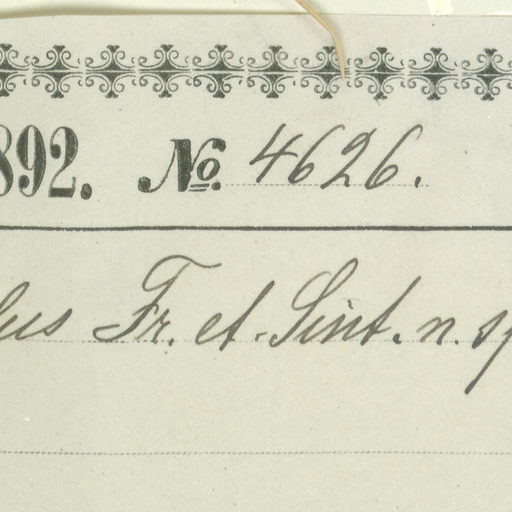 892. No. 4626.
lus Fr. et. Sint. n. sp